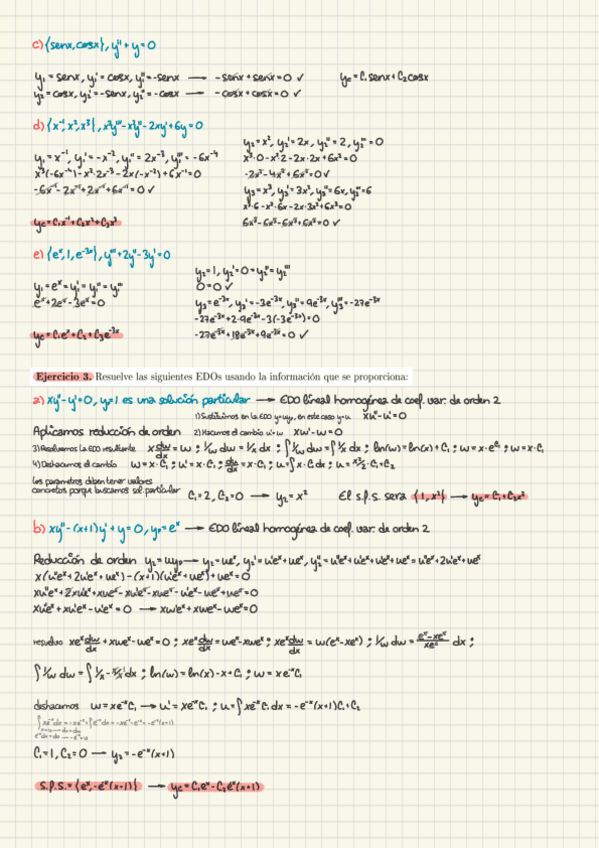 c) {senx, cosx}, y'' + y = 0
y₁ = senx, y₁' = cosx, y₁'' = -senx → -senx + senx = 0 ✓ yc = C₁senx + C₂cosx
y₂ = cosx, y₂' = -senx, y₂'' = -cosx → -cosx + cosx = 0 ✓
d) {x⁻¹, x², x³}, x³y''' - x²y'' - 2xy' + 6y = 0
y₂ = x², y₂' = 2x, y₂'' = 2, y₂''' = 0
y₁ = x⁻¹, y₁' = -x⁻², y₁'' = 2x⁻³, y₁''' = -6x⁻⁴
x³·0 - x²·2 - 2x·2x + 6x² = 0
x³(-6x⁻⁴) - x²·2x⁻³ - 2x(-x⁻²) + 6x⁻¹ = 0
-2x² - 4x² + 6x² = 0 ✓
-6x⁻¹ - 2x⁻¹ + 2x⁻¹ + 6x⁻¹ = 0 ✓
y₃ = x³, y₃' = 3x², y₃'' = 6x, y₃''' = 6
x³·6 - x²·6x - 2x·3x² + 6x³ = 0
yc = C₁x⁻¹ + C₂x² + C₃x³
6x³ - 6x³ - 6x³ + 6x³ = 0 ✓
e) {eˣ, 1, e⁻³ˣ}, y''' + 2y'' - 3y' = 0
y₂ = 1, y₂' = 0 = y₂'' = y₂'''
y₁ = eˣ = y₁' = y₁'' = y₁'''
0 = 0 ✓
eˣ + 2eˣ - 3eˣ = 0
y₃ = e⁻³ˣ, y₃' = -3e⁻³ˣ, y₃'' = 9e⁻³ˣ, y₃''' = -27e⁻³ˣ
-27e⁻³ˣ + 2·9e⁻³ˣ - 3(-3e⁻³ˣ) = 0
yc = C₁eˣ + C₂ + C₃e⁻³ˣ
-27e⁻³ˣ + 18e⁻³ˣ + 9e⁻³ˣ = 0 ✓
Ejercicio 3. Resuelve las siguientes EDOs usando la información que se proporciona:
a) xy'' - y' = 0, y₁ = 1 es una solución particular → EDO lineal homogénea de coef. var. de orden 2
1) Sustituimos en la EDO y = uy₁, en este caso y = u. xu'' - u' = 0
Aplicamos reducción de orden 2) Hacemos el cambio u' = w xw' - w = 0
3) Resolvemos la EDO resultante x dw/dx = w ; 1/w dw = 1/x dx ; ∫1/w dw = ∫1/x dx ; ln(w) = ln(x) + C₁ ; w = x·e^C₁ ; w = x·C₁
4) Deshacemos el cambio w = x·C₁ ; u' = x·C₁ ; du/dx = x·C₁ ; u = ∫x·C₁ dx ; u = x²/2·C₁ + C₂
los parámetros deben tener valores
concretos porque buscamos sol. particular C₁ = 2, C₂ = 0 → y₂ = x² El s.p.s. sera {1, x²} → yc = C₁ + C₂x²
b) xy'' - (x+1)y' + y = 0, yₚ = eˣ → EDO lineal homogénea de coef. var. de orden 2
Reducción de orden y₂ = uyₚ → y₂ = ueˣ, y₂' = u'eˣ + ueˣ, y₂'' = u''eˣ + u'eˣ + u'eˣ + ueˣ = u''eˣ + 2u'eˣ + ueˣ
x(u''eˣ + 2u'eˣ + ueˣ) - (x+1)(u'eˣ + ueˣ) + ueˣ = 0
xu''eˣ + 2xu'eˣ + xueˣ - xu'eˣ - xueˣ - u'eˣ - ueˣ + ueˣ = 0
xu''eˣ + xu'eˣ - u'eˣ = 0 → xw'eˣ + xweˣ - weˣ = 0
resuelvo xeˣ dw/dx + xweˣ - weˣ = 0 ; xeˣ dw/dx = weˣ - xweˣ ; xeˣ dw/dx = w(eˣ - xeˣ) ; 1/w dw = (eˣ - xeˣ)/xeˣ dx ;
∫1/w dw = ∫1/x - x/x dx ; ln(w) = ln(x) - x + C₁ ; w = xe⁻ˣC₁
deshacemos w = xe⁻ˣC₁ → u' = xe⁻ˣC₁ ; u = ∫xe⁻ˣC₁ dx = -e⁻ˣ(x+1)C₁ + C₂
∫xe⁻ˣdx = -xe⁻ˣ + ∫e⁻ˣdx = -xe⁻ˣ - e⁻ˣ = -e⁻ˣ(x+1)
C₁ = 1, C₂ = 0 → y₂ = -e⁻ˣ(x+1)
S.P.S. = {eˣ, -e⁻ˣ(x+1)} → yc = C₁eˣ - C₂e⁻ˣ(x+1)